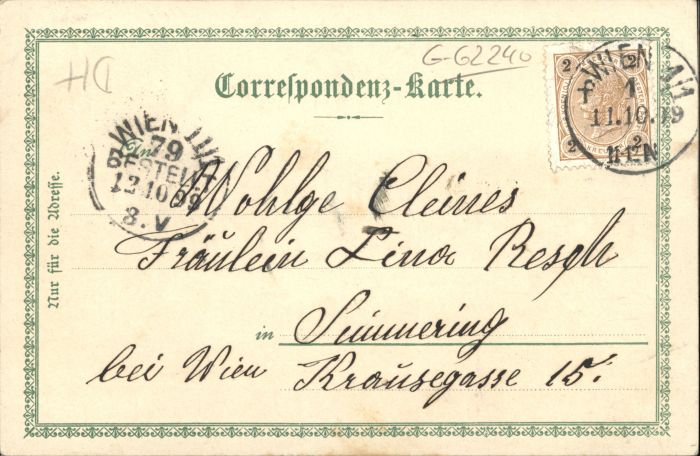 G-62240
Correspondenz-Karte.
2 2
WIEN 1/1
1
11.10.99
WIEN
2 2
WIEN
79
BESTELLT
12.10.99
8.V
An
Nur für die Adresse.
Wohlge
Fräulein Lina Resch
in Simmering
bei Wien Krausegasse 15.